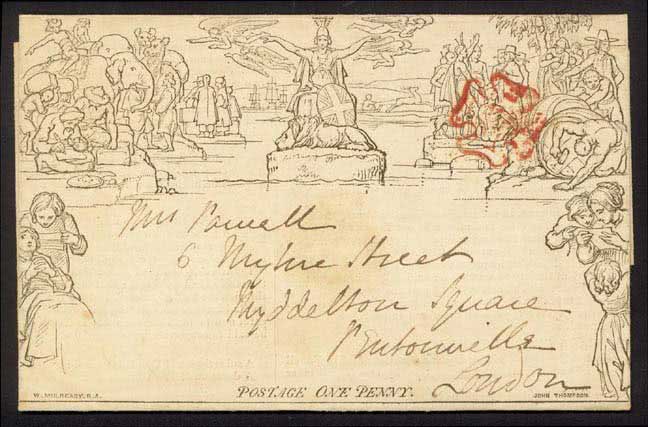 Mrs Powell
6 Mylne Street
Myddelton Square
Pentonville
London
POSTAGE ONE PENNY.
W. MULREADY. R.A.
JOHN THOMPSON.